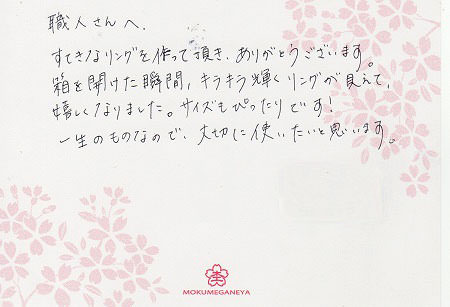 職人さんへ.
すてきなリングを作って頂き、ありがとうございます。
箱を開けた瞬間、キラキラ輝くリングが見えて、
嬉しくなりました。サイズもぴったりです!
一生のものなので、大切に使いたいと思います。
MOKUMEGANEYA